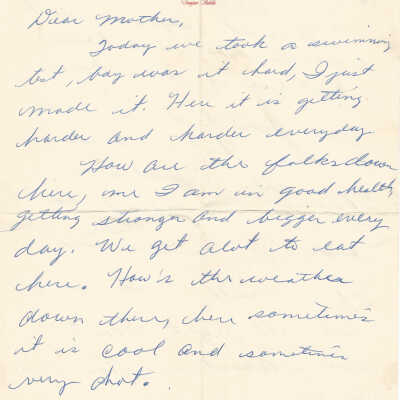 Dear Mother,
Today we took a swimming
test, boy was it hard, I just
made it. Here it is getting
harder and harder everyday
How are the folks down
here, me I am in good health,
getting stronger and bigger every
day. We get alot to eat
here. How's the weather
down there, here sometimes
it is cool and sometimes
very hot.